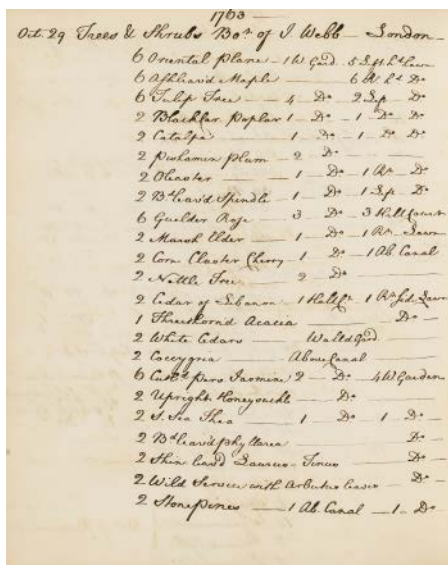 1763 —
Oct: 29 Trees & Shrubs Bot. of J. Webb — London —
6 Oriental plane — 1 W Gard. 5 Left Lawn
6 Ashleav'd Maple — 6 Do
6 Tulip Tree — 4 Do 2 Do
2 Black Poplar 1 — Do — 1 Do Do
2 Catalpa — 1 — Do — 1 Do Do
2 plum — 2 Do
2 Oleaster — 1 — Do — 1 Rt — Do
2 Bd leav'd Spindle — 1 Do — 1 Do
6 Guelder Rose — 3 — Do — 3 Hall Court
2 Marsh Elder — 1 — Do — 1 Rt Lawn
2 Corn Cluster Cherry 1 — Do — 1 Ab. Canal
2 Nettle Tree — 2 — Do
2 Cedar of Lebanon — 1 Hall Ct 1 Rt Sid. Lawn
1 Threethorn'd Acacia — Do
2 White Cedars — Wall'd Gard
2 Coccygria — Above Canal
6 Jasmine 2 — Do — 4 W Garden
2 Upright Honeysuckle — Do
2 S. Sea Thea — 1 — Do 1 — Do
2 Bd leav'd phyllirea — Do
2 Shin leav'd Laurus-Tinus — Do
2 Wild Service with Arbutus leaves — Do
2 Stone pines — 1 Ab. Canal — 1 — Do